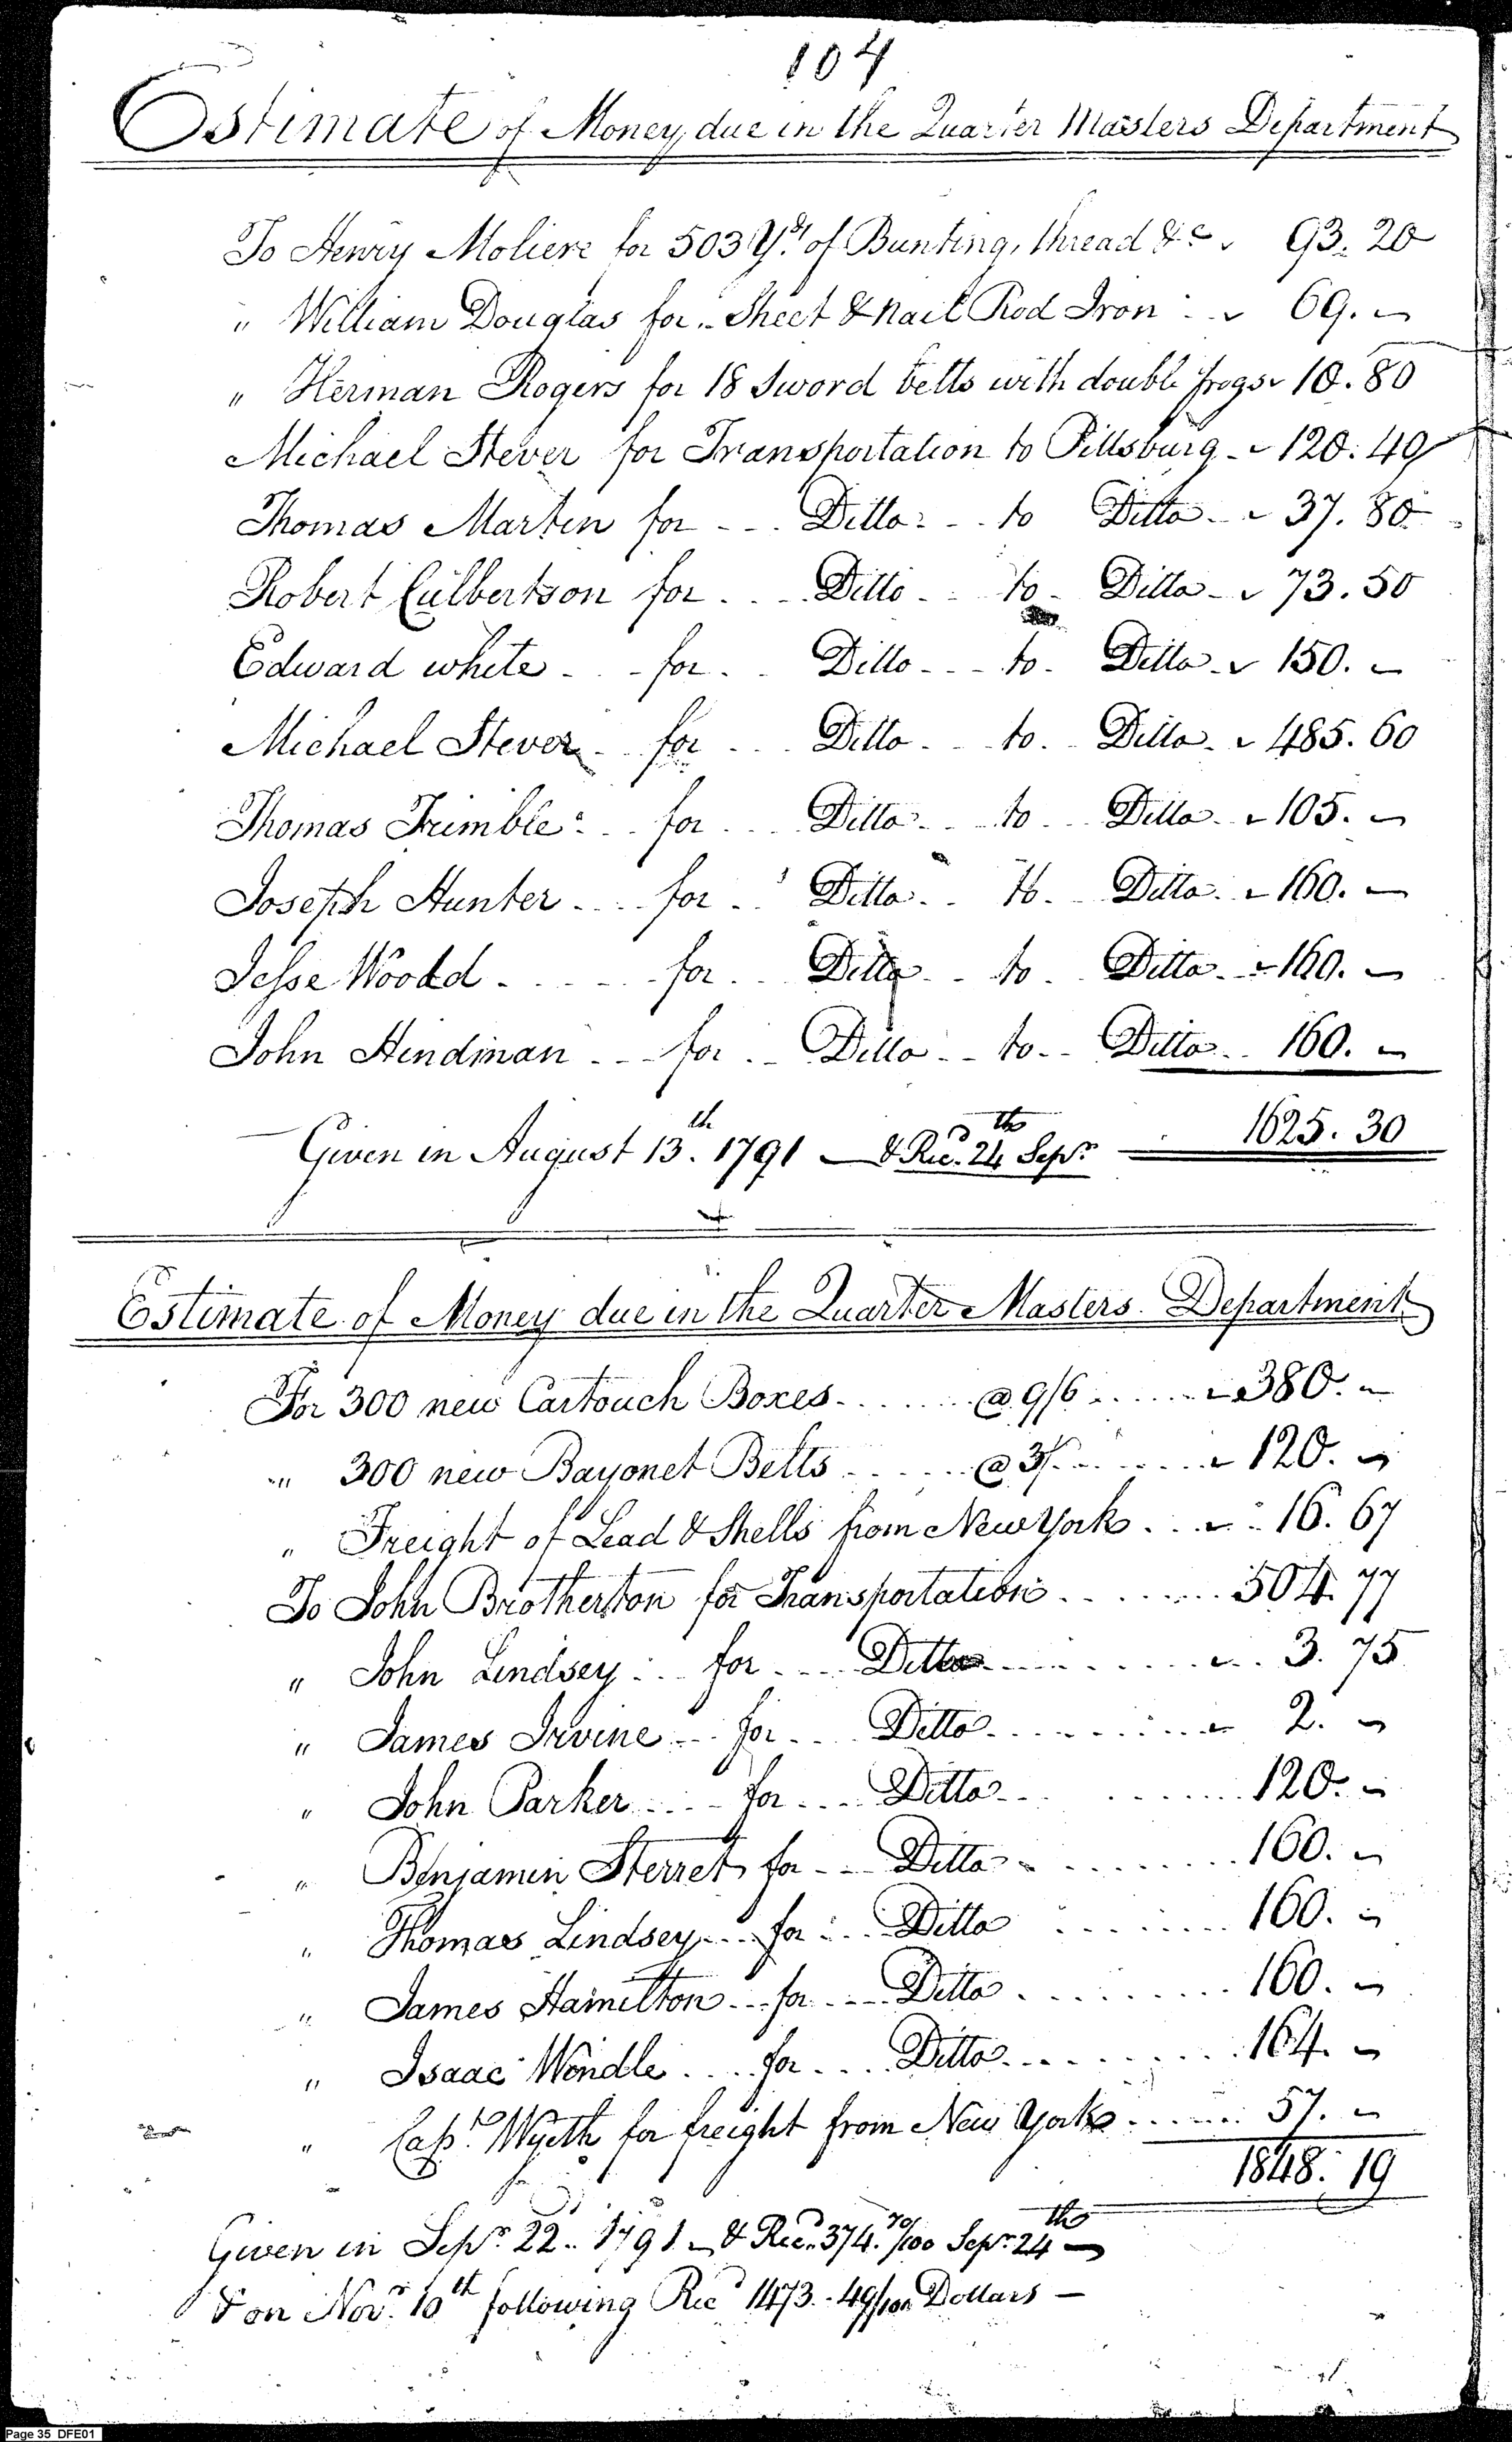 104
Estimate of Money due in the Quarter Masters Department
To Henry Moliere for 503 Yds. of Bunting, thread &c 93. 20
" William Douglas for Sheet & nail Rod Iron 69. –
" Herman Rogers for 18 Sword belts with double frogs 10. 80
Michael Stever for Transportation to Pittsburg 120. 40
Thomas Martin for Ditto to Ditto 37. 80
Robert Culbertson for Ditto to Ditto 73. 50
Edward white for Ditto to Ditto 150. –
Michael Stever for Ditto to Ditto 485. 60
Thomas Trimble for Ditto to Ditto 105. –
Joseph Hunter for Ditto to Ditto 160. –
Jesse Woodd for Ditto to Ditto 160. –
John Hindman for Ditto to Ditto 160. –
Given in August 13th. 1791 — & Recd. 24th Sepr 1625. 30
Estimate of Money due in the Quarter Masters Department
For 300 new Cartouch Boxes @ 9/6 380. –
" 300 new Bayonet Belts @ 3/ 120. –
" Freight of Lead & Shells from New York 16. 67
To John Brotherton for Transportation 504. 77
" John Lindsey for Ditto 3. 75
" James Irvine for Ditto 2. –
" John Parker for Ditto 120. –
" Benjamin Sterret for Ditto 160. –
" Thomas Lindsey for Ditto 160. –
" James Hamilton for Ditto 160. –
" Isaac Wendle for Ditto 164. –
" Capt. Wyeth for freight from New York 57. –
1848. 19
Given in Sepr. 22.. 1791 – & Recd. 374. 70/100 Sepr. 24th —
& on Novr. 10th following Recd 1473. 49/100 Dollars —
Page 35 DFE01